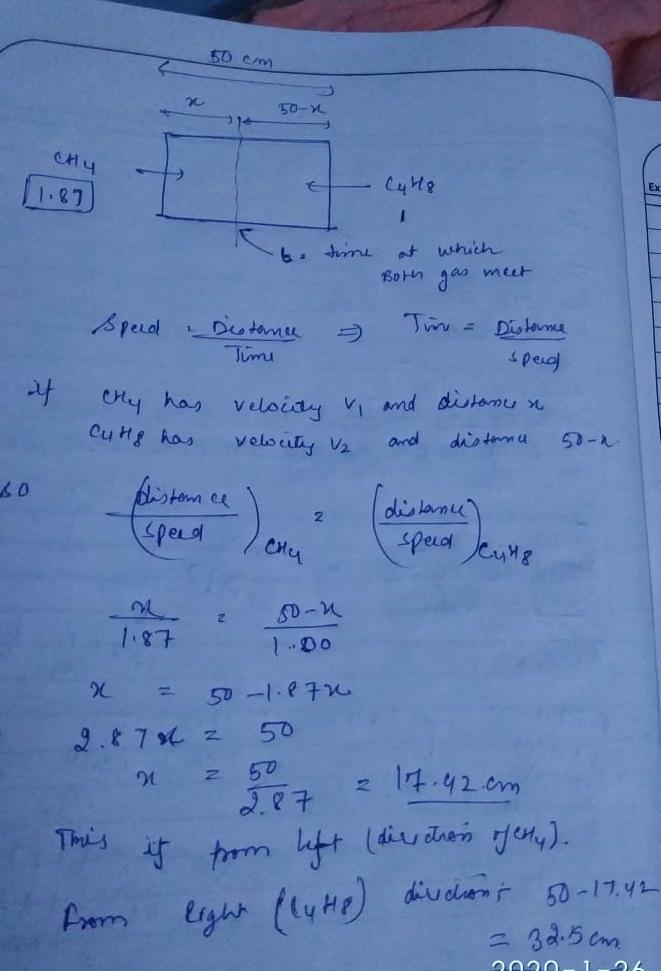 50 cm
x 50-x
CH4
1.87
C4H8
1
t = time at which
Both gas meet
Speed = Distance / Time ⇒ Tim = Distance / speed
if CH4 has velocity V1 and distance x
C4H8 has velocity V2 and distance 50-x.
so (distance / speed) CH4 = (distance / speed) C4H8
x / 1.87 = 50-x / 1.00
x = 50 -1.87x
2.87x = 50
x = 50 / 2.87 = 17.42 cm
This if from left (direction of CH4).
from right (C4H8) direction: 50-17.42
= 32.5 cm
Ex